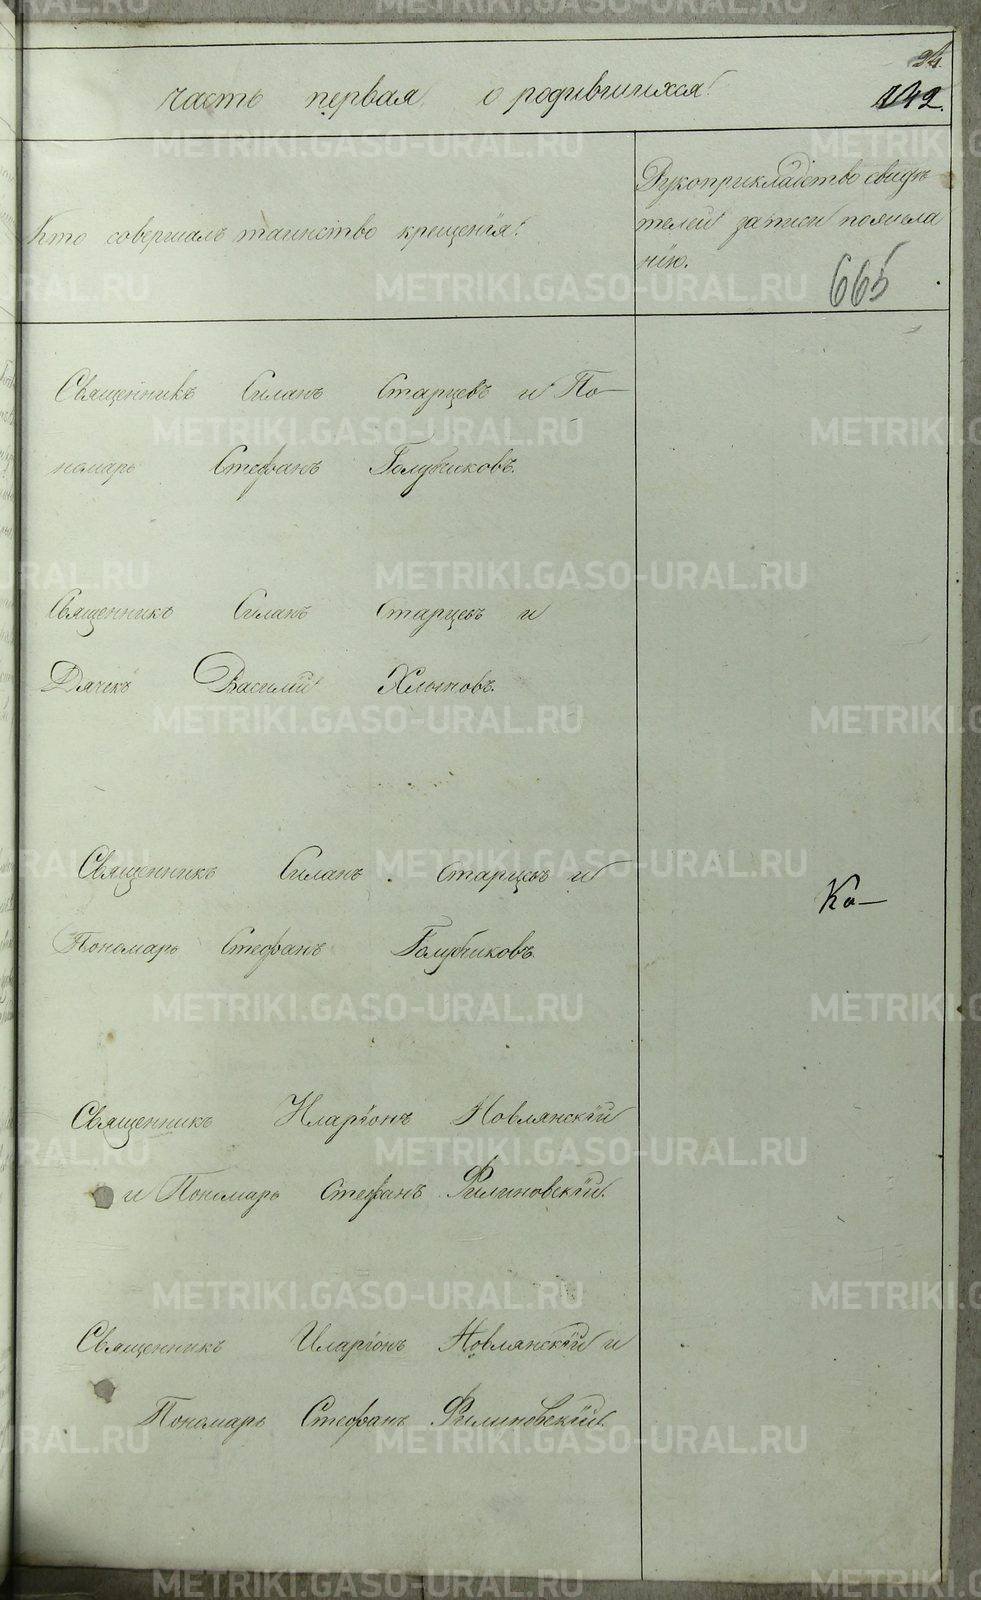 94.
142.
часть первая о родившихся.
Кто совершалъ таинство крещенія.
Рукоприкладство свидѣ
телей записи по жела
нію.
665
Священникъ Силанъ Старцевъ и По-
номарь Стефанъ Голубчиковъ.
Священникъ Силанъ Старцевъ и
Дячекъ Василий Хлыновъ.
Священникъ Силанъ Старцевъ и
Пономарь Стефанъ Голубчиковъ.
Ка-
Священникъ Иларіонъ Новлянскій
и Пономарь Стефанъ Филиновскій.
Священникъ Иларіонъ Новлянскій и
Пономарь Стефанъ Филиновскій.
METRIKI.GASO-URAL.RU